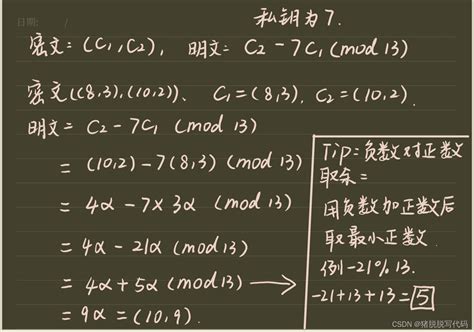 日期: /
私钥为7.
密文=(C₁,C₂), 明文=C₂-7C₁(mod 13)
密文((8,3),(10,2))、C₁=(8,3), C₂=(10,2).
明文= C₂-7C₁ (mod 13)
= (10,2)-7(8,3) (mod 13)
= 4α-7×3α (mod 13)
= 4α-21α (mod 13)
= 4α+5α (mod 13) →
= 9α = (10,9).
Tip=负数对正数
取余=
用负数加正数后
取最小正数.
例-21%13.
-21+13+13=5
CSDN @猪脱脱写代码